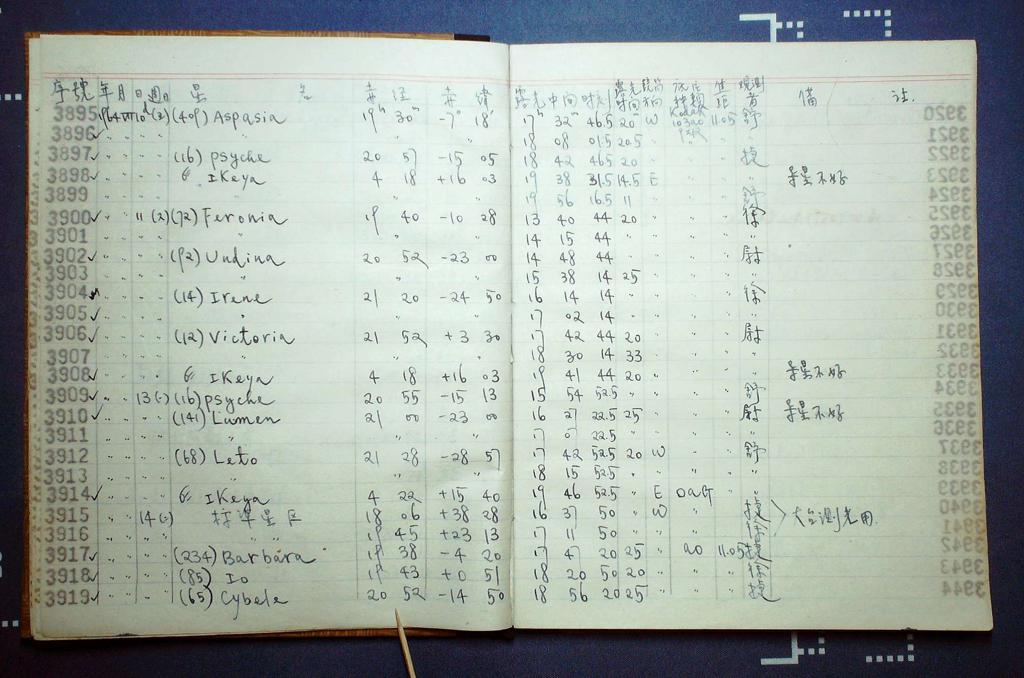 序號 年 月 日 週日 星 名 赤 經 赤 緯 露光中間時刻 露光時間 鏡筒方向 底片種類 焦距 觀測者 備 註
3895 ✓ (2) (409) Aspasia 19h 30m -7° 18' 17h 32m 46.5 20m W Kodak 103aO 11.05 舒 3920
3896 ✓ " " " " 18 08 01.5 20.5 " " " 3921
3897 ✓ " " " (16) psyche 20 57 -15 05 18 42 46.5 20 " 3922
3898 ✓ " " " IKeya 4 18 +16 03 19 38 31.5 14.5 E 导星不好 3923
3899 " " " " " 19 56 16.5 11 " 舒 3924
3900 ✓ " " 11 (2) (72) Feronia 19 40 -10 28 13 40 44 20 " 徐 3925
3901 " " " " 14 15 44 " " " 3926
3902 ✓ " " " (92) Undina 20 52 -23 00 14 48 44 " 尉 3927
3903 " " " " 15 38 14 25 " " 3928
3904 ✓ " " " (14) Irene 21 20 -24 50 16 14 14 " 徐 3929
3905 ✓ " " " " 17 02 14 " " 3930
3906 ✓ " " " (12) Victoria 21 52 +3 30 17 42 44 20 尉 3931
3907 " " " " 18 30 14 33 " 3932
3908 ✓ " " " IKeya 4 18 +16 03 19 41 44 20 " 导星不好 3933
3909 ✓ " " 13 (16) psyche 20 55 -15 13 15 54 52.5 " 舒 3934
3910 ✓ " " " (141) Lumen 21 00 -23 00 16 27 22.5 25 尉 导星不好 3935
3911 " " " " 17 07 22.5 " 3936
3912 ✓ " " " (68) Leto 21 28 -28 57 17 42 52.5 20 W 舒 3937
3913 " " " " " 18 15 52.5 " " 3938
3914 ✓ " " " IKeya 4 22 +15 40 19 46 52.5 " E OaG " 3939
3915 ✓ " " 14 标準星区 18 06 +38 28 16 37 50 " W " 大台測光用 3940
3916 ✓ " " " " 19 45 +23 13 17 11 50 " " 3941
3917 ✓ " " " (234) Barbara 19 38 -4 20 17 47 20 25 " aO 11.05 3942
3918 ✓ " " " (85) Io 19 43 +0 51 18 20 50 20 " 徐 3943
3919 ✓ " " " (65) Cybele 20 52 -14 50 18 56 20 25 " 3944